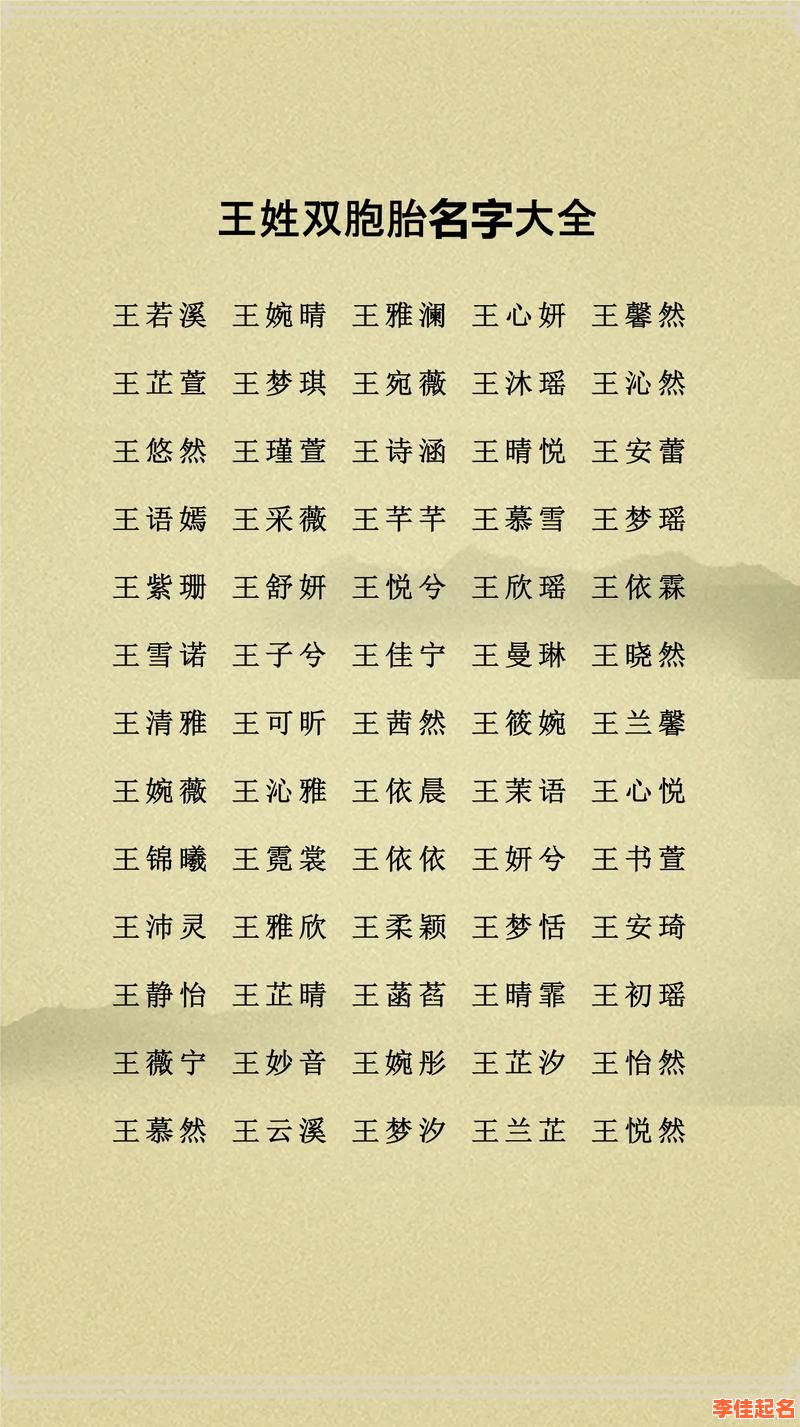 王姓双胞胎名字大全
王若溪 王婉晴 王雅澜 王心妍 王馨然
王芷萱 王梦琪 王宛薇 王沐瑶 王沁然
王悠然 王瑾萱 王诗涵 王晴悦 王安蕾
王语嫣 王采薇 王芊芊 王慕雪 王梦瑶
王紫珊 王舒妍 王悦兮 王欣瑶 王依霖
王雪诺 王子兮 王佳宁 王曼琳 王晓然
王清雅 王可昕 王茜然 王筱婉 王兰馨
王婉薇 王沁雅 王依晨 王茉语 王心悦
王锦曦 王霓裳 王依依 王妍兮 王书萱
王沛灵 王雅欣 王柔颖 王梦恬 王安琦
王静怡 王芷晴 王菡萏 王晴霏 王初瑶
王薇宁 王妙音 王婉彤 王芷汐 王怡然
王慕然 王云溪 王梦汐 王兰芷 王悦然
李佳起名